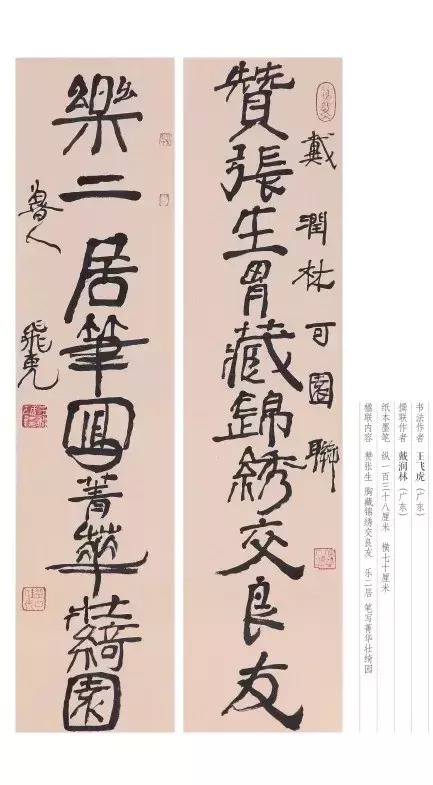 书法作者 王飞虎（广东）
撰联作者 戴润林（广东）
纸本墨笔 纵一百三十八厘米 横七十厘米
楹联内容 赞张生 胸藏锦绣交良友 乐二居 笔写菁华壮绮园
戴潤林可園聯
贊張生胷藏錦綉交良友
樂二居筆菁華壯綺園
魯人 飛虎